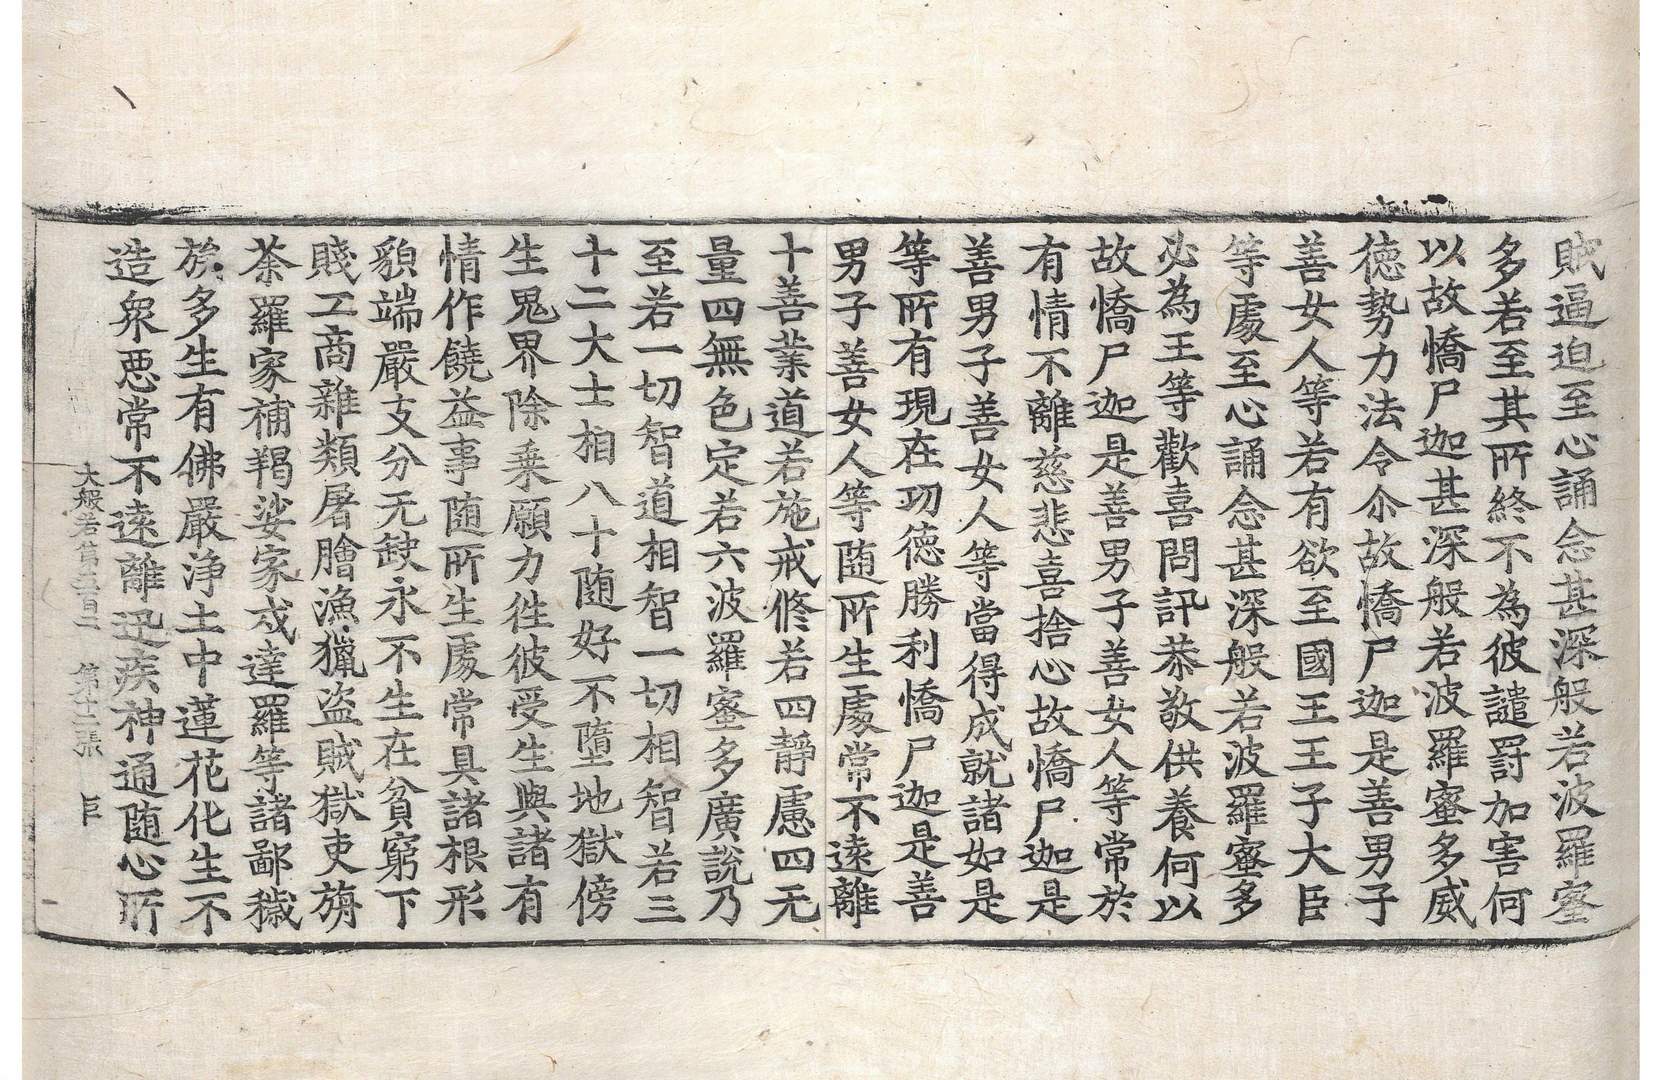 賊逼迫至心誦念甚深般若波羅蜜
多若至其所終不為彼譴罰加害何
以故憍尸迦甚深般若波羅蜜多威
德勢力法令尒故憍尸迦是善男子
善女人等若有欲至國王王子大臣
等處至心誦念甚深般若波羅蜜多
必為王等歡喜問訊恭敬供養何以
故憍尸迦是善男子善女人等常於
有情不離慈悲喜捨心故憍尸迦是
善男子善女人等當得成就諸如是
等所有現在功德勝利憍尸迦是善
男子善女人等随所生處常不遠離
十善業道若施戒修若四靜慮四无
量四無色定若六波羅蜜多廣說乃
至若一切智道相智一切相智若三
十二大士相八十随好不墮地獄傍
生鬼界除乗願力徃彼受生與諸有
情作饒益事随所生處常具諸根形
貌端嚴支分无缺永不生在貧窮下
賤工商雜類屠膾漁獵盜賊獄吏旃
荼羅家補羯娑家戍達羅等諸鄙穢
族多生有佛嚴淨土中蓮花化生不
造眾惡常不遠離迅疾神通随心所
大般若第三百二 第十二張 臣